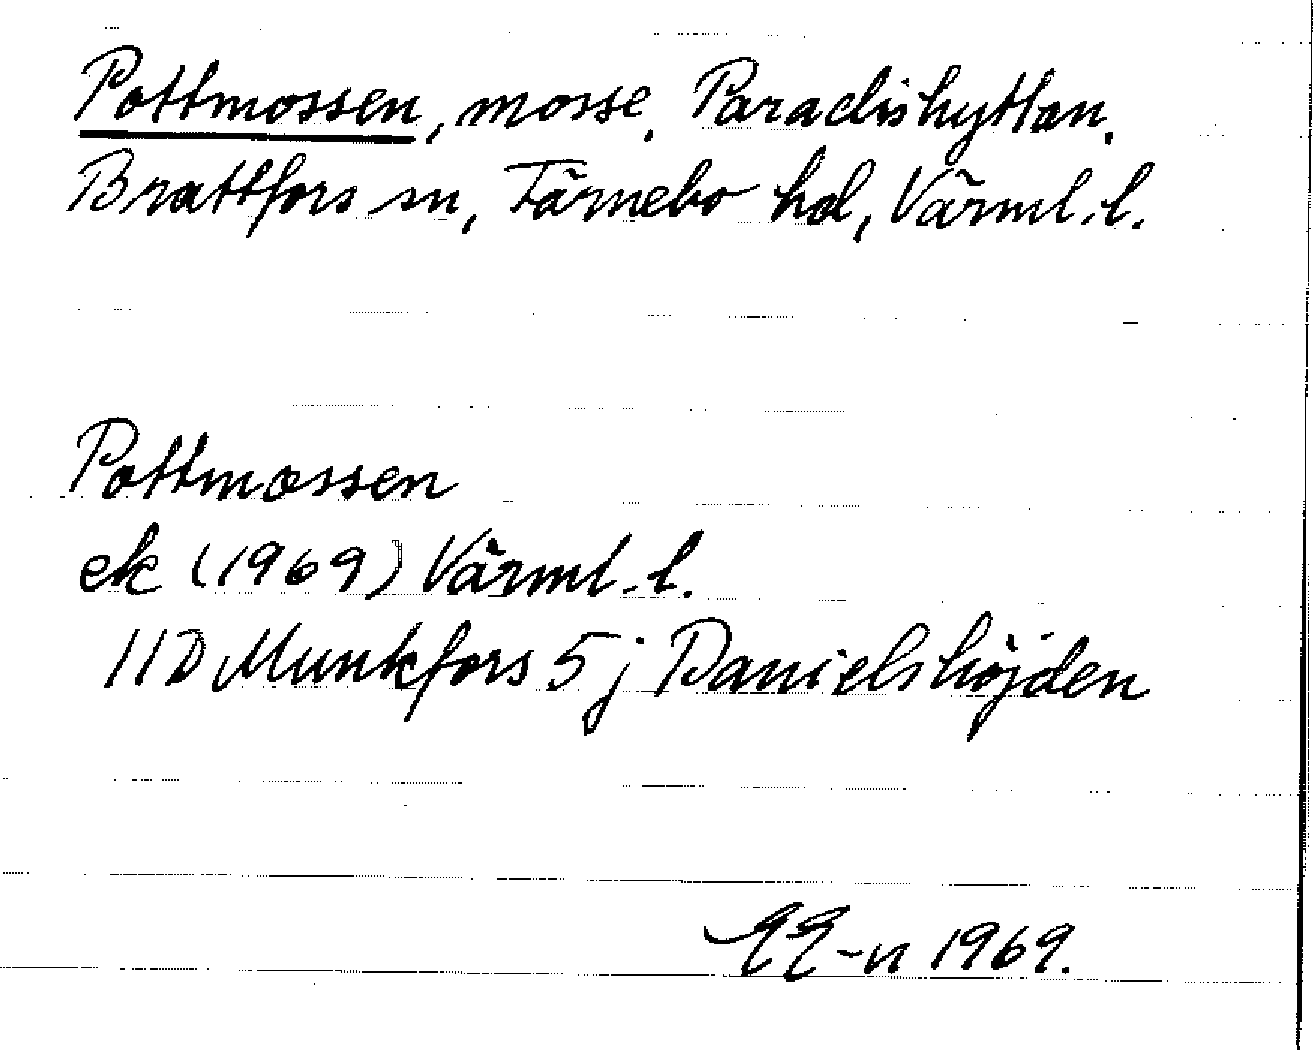 Pottmossen, mosse, Paradishyttan,
Brattfors sn, Färnebo hd, Värml. l.
Pottmossen
ek (1969) Värml. l.
11D Munkfors 5j Danielshöjden
EE-n 1969.